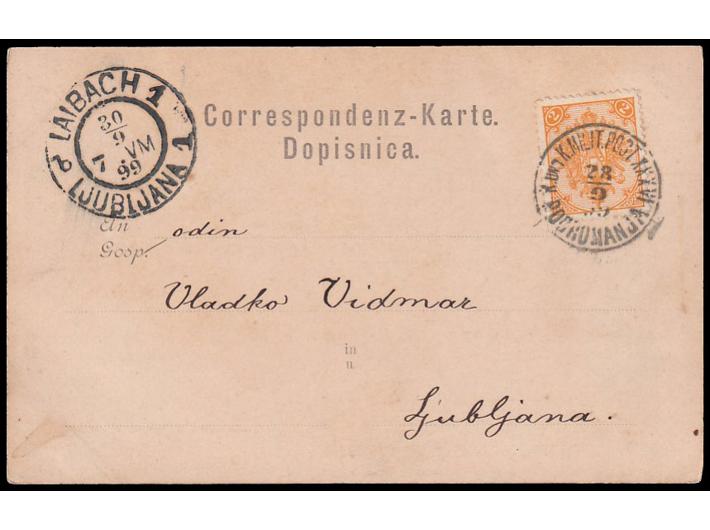 LAIBACH 1
30
9
7 VM
99
LJUBLJANA 1
Correspondenz-Karte.
Dopisnica.
2 2
28
9
PODROMANJA
An
Gosp.
odin
Vladko Vidmar
in
u
Ljubljana.